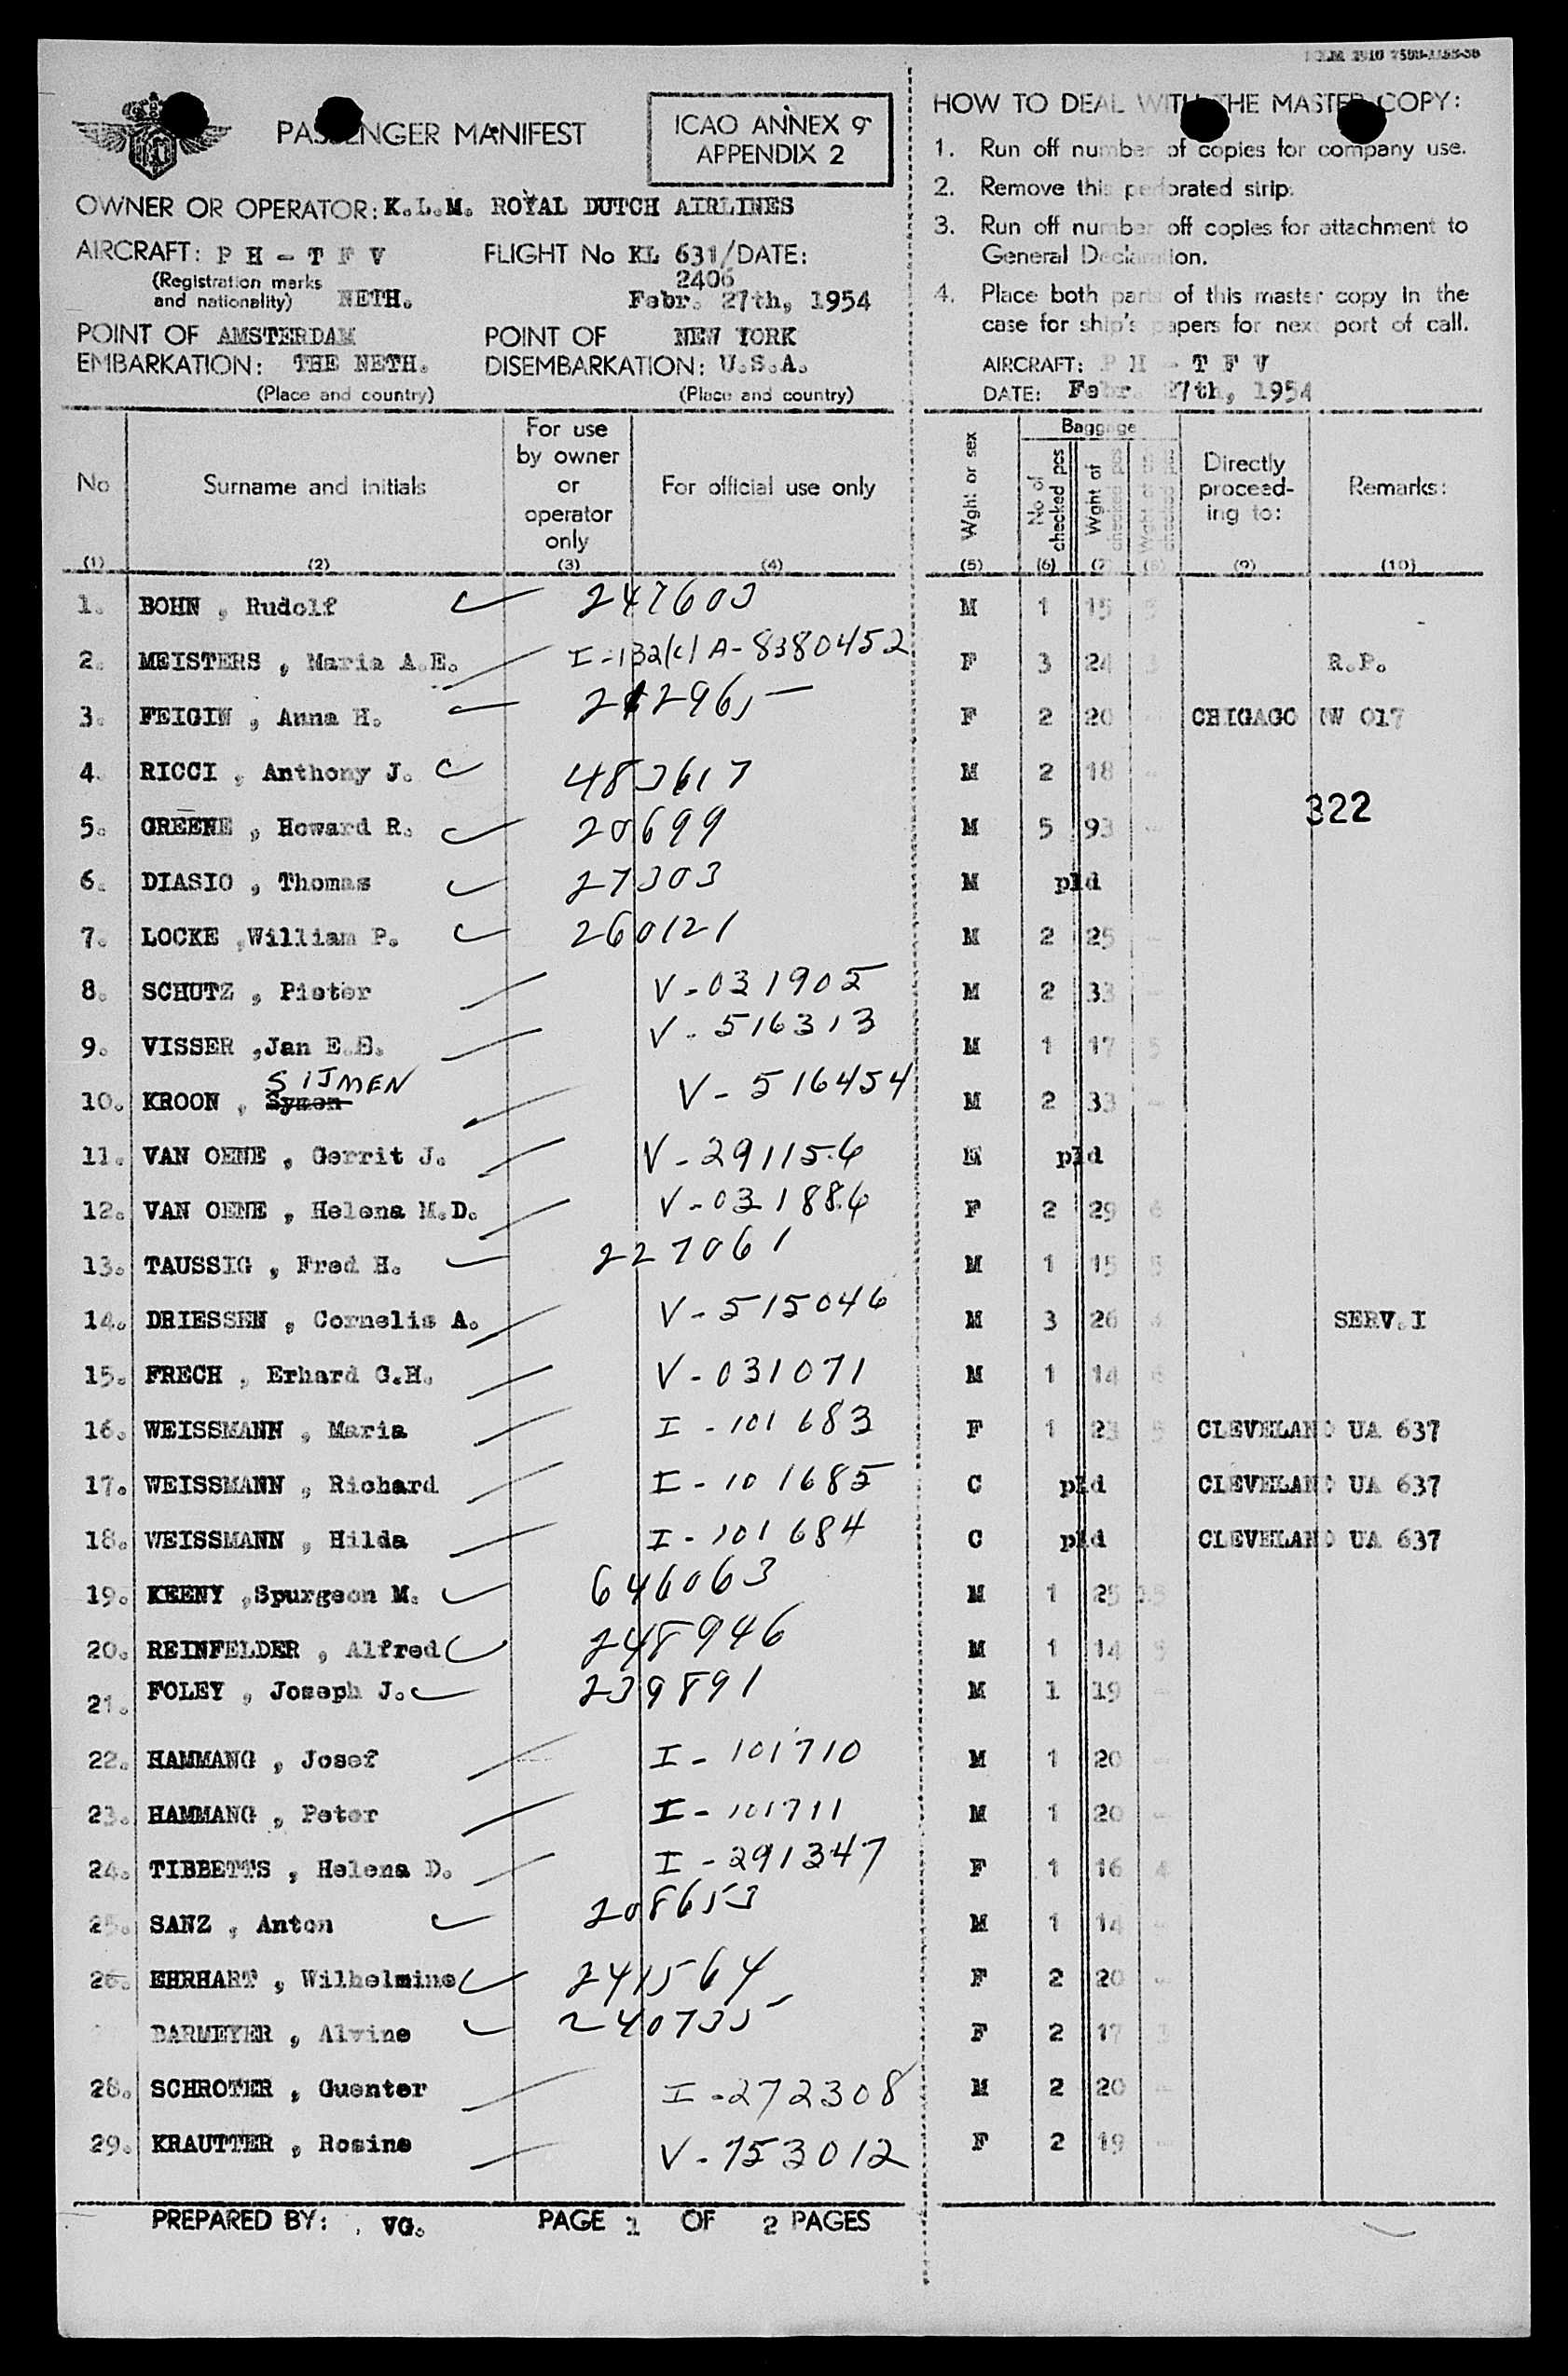 PASSENGER MANIFEST
ICAO ANNEX 9
APPENDIX 2
OWNER OR OPERATOR: K.L.M. ROYAL DUTCH AIRLINES
AIRCRAFT: P H - T F V
(Registration marks
and nationality) NETH.
FLIGHT No KL 631/DATE:
2406
Febr. 27th, 1954
POINT OF AMSTERDAM
EMBARKATION: THE NETH.
(Place and country)
POINT OF NEW YORK
DISEMBARKATION: U.S.A.
(Place and country)
HOW TO DEAL WITH THE MASTER COPY:
1. Run off number of copies for company use.
2. Remove this perforated strip.
3. Run off number off copies for attachment to
General Declaration.
4. Place both parts of this master copy in the
case for ship's papers for next port of call.
AIRCRAFT: P H - T F V
DATE: Febr. 27th, 1954
No
(1)
Surname and initials
(2)
For use
by owner
or
operator
only
(3)
For official use only
(4)
Wght or sex
(5)
Baggage
No of
checked pcs
(6)
Wght of
checked pcs
(7)
(8)
Directly
proceed-
ing to:
(9)
Remarks:
(10)
1. BOHN , Rudolf 247603 M 1 15 5
2. MEISTERS , Maria A.E. I-132(c) A-8380452 F 3 24 3 R.P.
3. FEIGIN , Anna H. 212965 F 2 20 - CHIGAGO NW 017
4. RICCI , Anthony J. 483617 M 2 18 -
322
5. GREENE , Howard R. 20699 M 5 93 -
6. DIASIO , Thomas 27303 M pld
7. LOCKE ,William P. 260121 M 2 25 -
8. SCHUTZ , Pieter V-031905 M 2 33 -
9. VISSER ,Jan E.E. V-516313 M 1 17 5
SIJMEN
10. KROON , Symon V-516454 M 2 33 -
11. VAN OENE , Gerrit J. V-291156 M pld
12. VAN OENE , Helena M.D. V-031886 F 2 29 6
13. TAUSSIG , Fred H. 227061 M 1 15 5
14. DRIESSEN , Cornelis A. V-515046 M 3 26 4 SERV.I
15. FRECH , Erhard G.H. V-031071 M 1 14 6
16. WEISSMANN , Maria I-101683 F 1 23 5 CLEVELAND UA 637
17. WEISSMANN , Richard I-101685 C pld CLEVELAND UA 637
18. WEISSMANN , Hilda I-101684 C pld CLEVELAND UA 637
19. KEENY ,Spurgeon M. 646063 M 1 25 15
20. REINFELDER , Alfred 248946 M 1 14 5
21. FOLEY , Joseph J. 239891 M 1 19 -
22. HAMMANG , Josef I-101710 M 1 20 -
23. HAMMANG , Peter I-101711 M 1 20 -
24. TIBBETTS , Helena D. I-291347 F 1 16 4
25. SANZ , Anton 208653 M 1 14 -
26. EHRHART , Wilhelmine 241564 F 2 20 -
DARMEYER , Alvine 240735 F 2 17 3
28. SCHROTER , Guenter I-272308 M 2 20 -
29. KRAUTTER , Rosine V-753012 F 2 19 -
PREPARED BY: VG. PAGE 1 OF 2 PAGES